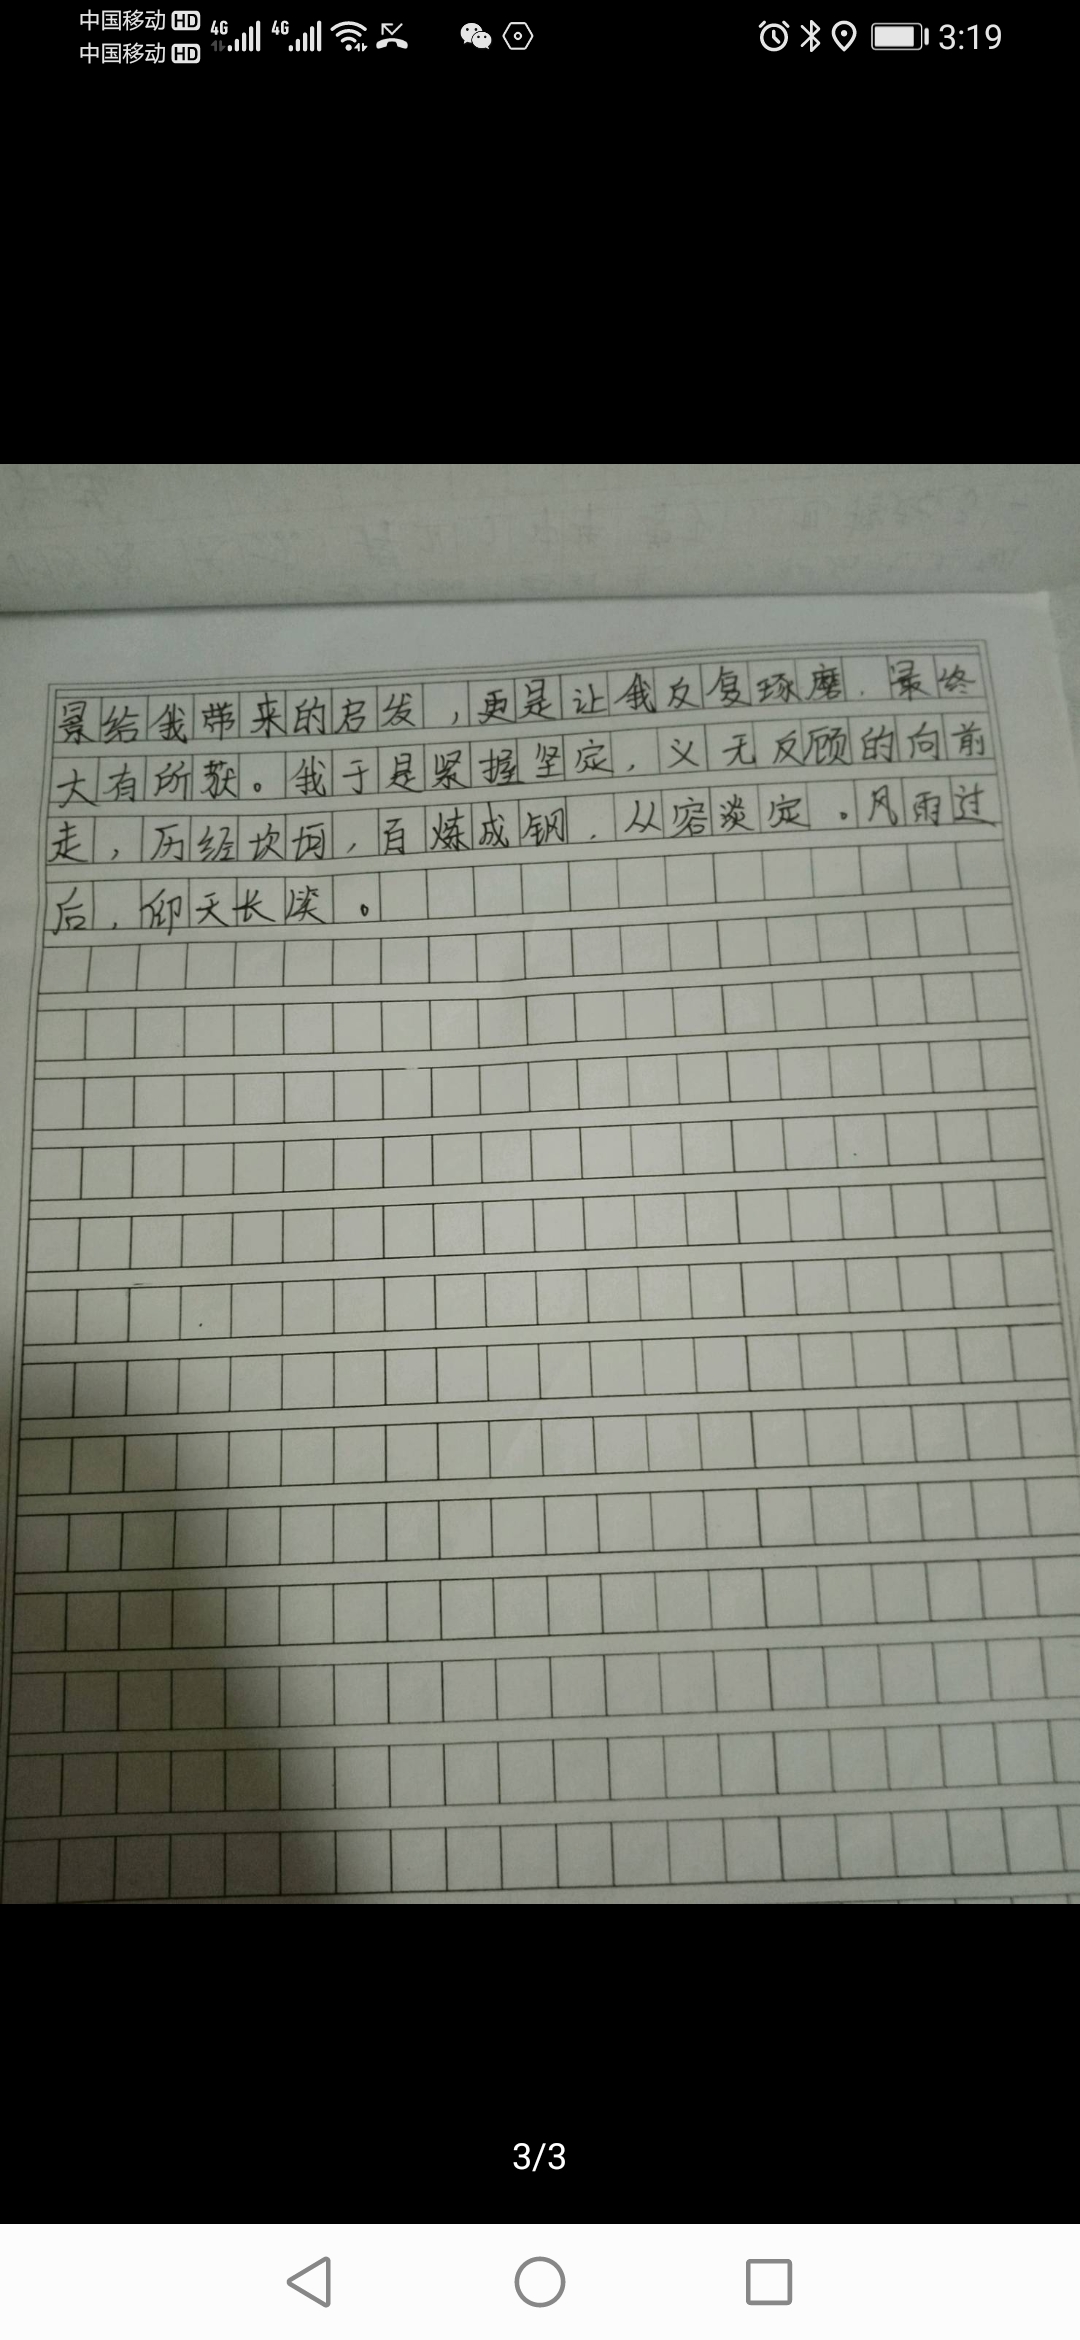 中国移动 HD 4G 4G 3:19
中国移动 HD
景给我带来的启发，更是让我反复琢磨，最终
大有所获。我于是紧握坚定，义无反顾的向前
走，历经坎坷，百炼成钢，从容淡定。风雨过
后，仰天长笑。
3/3